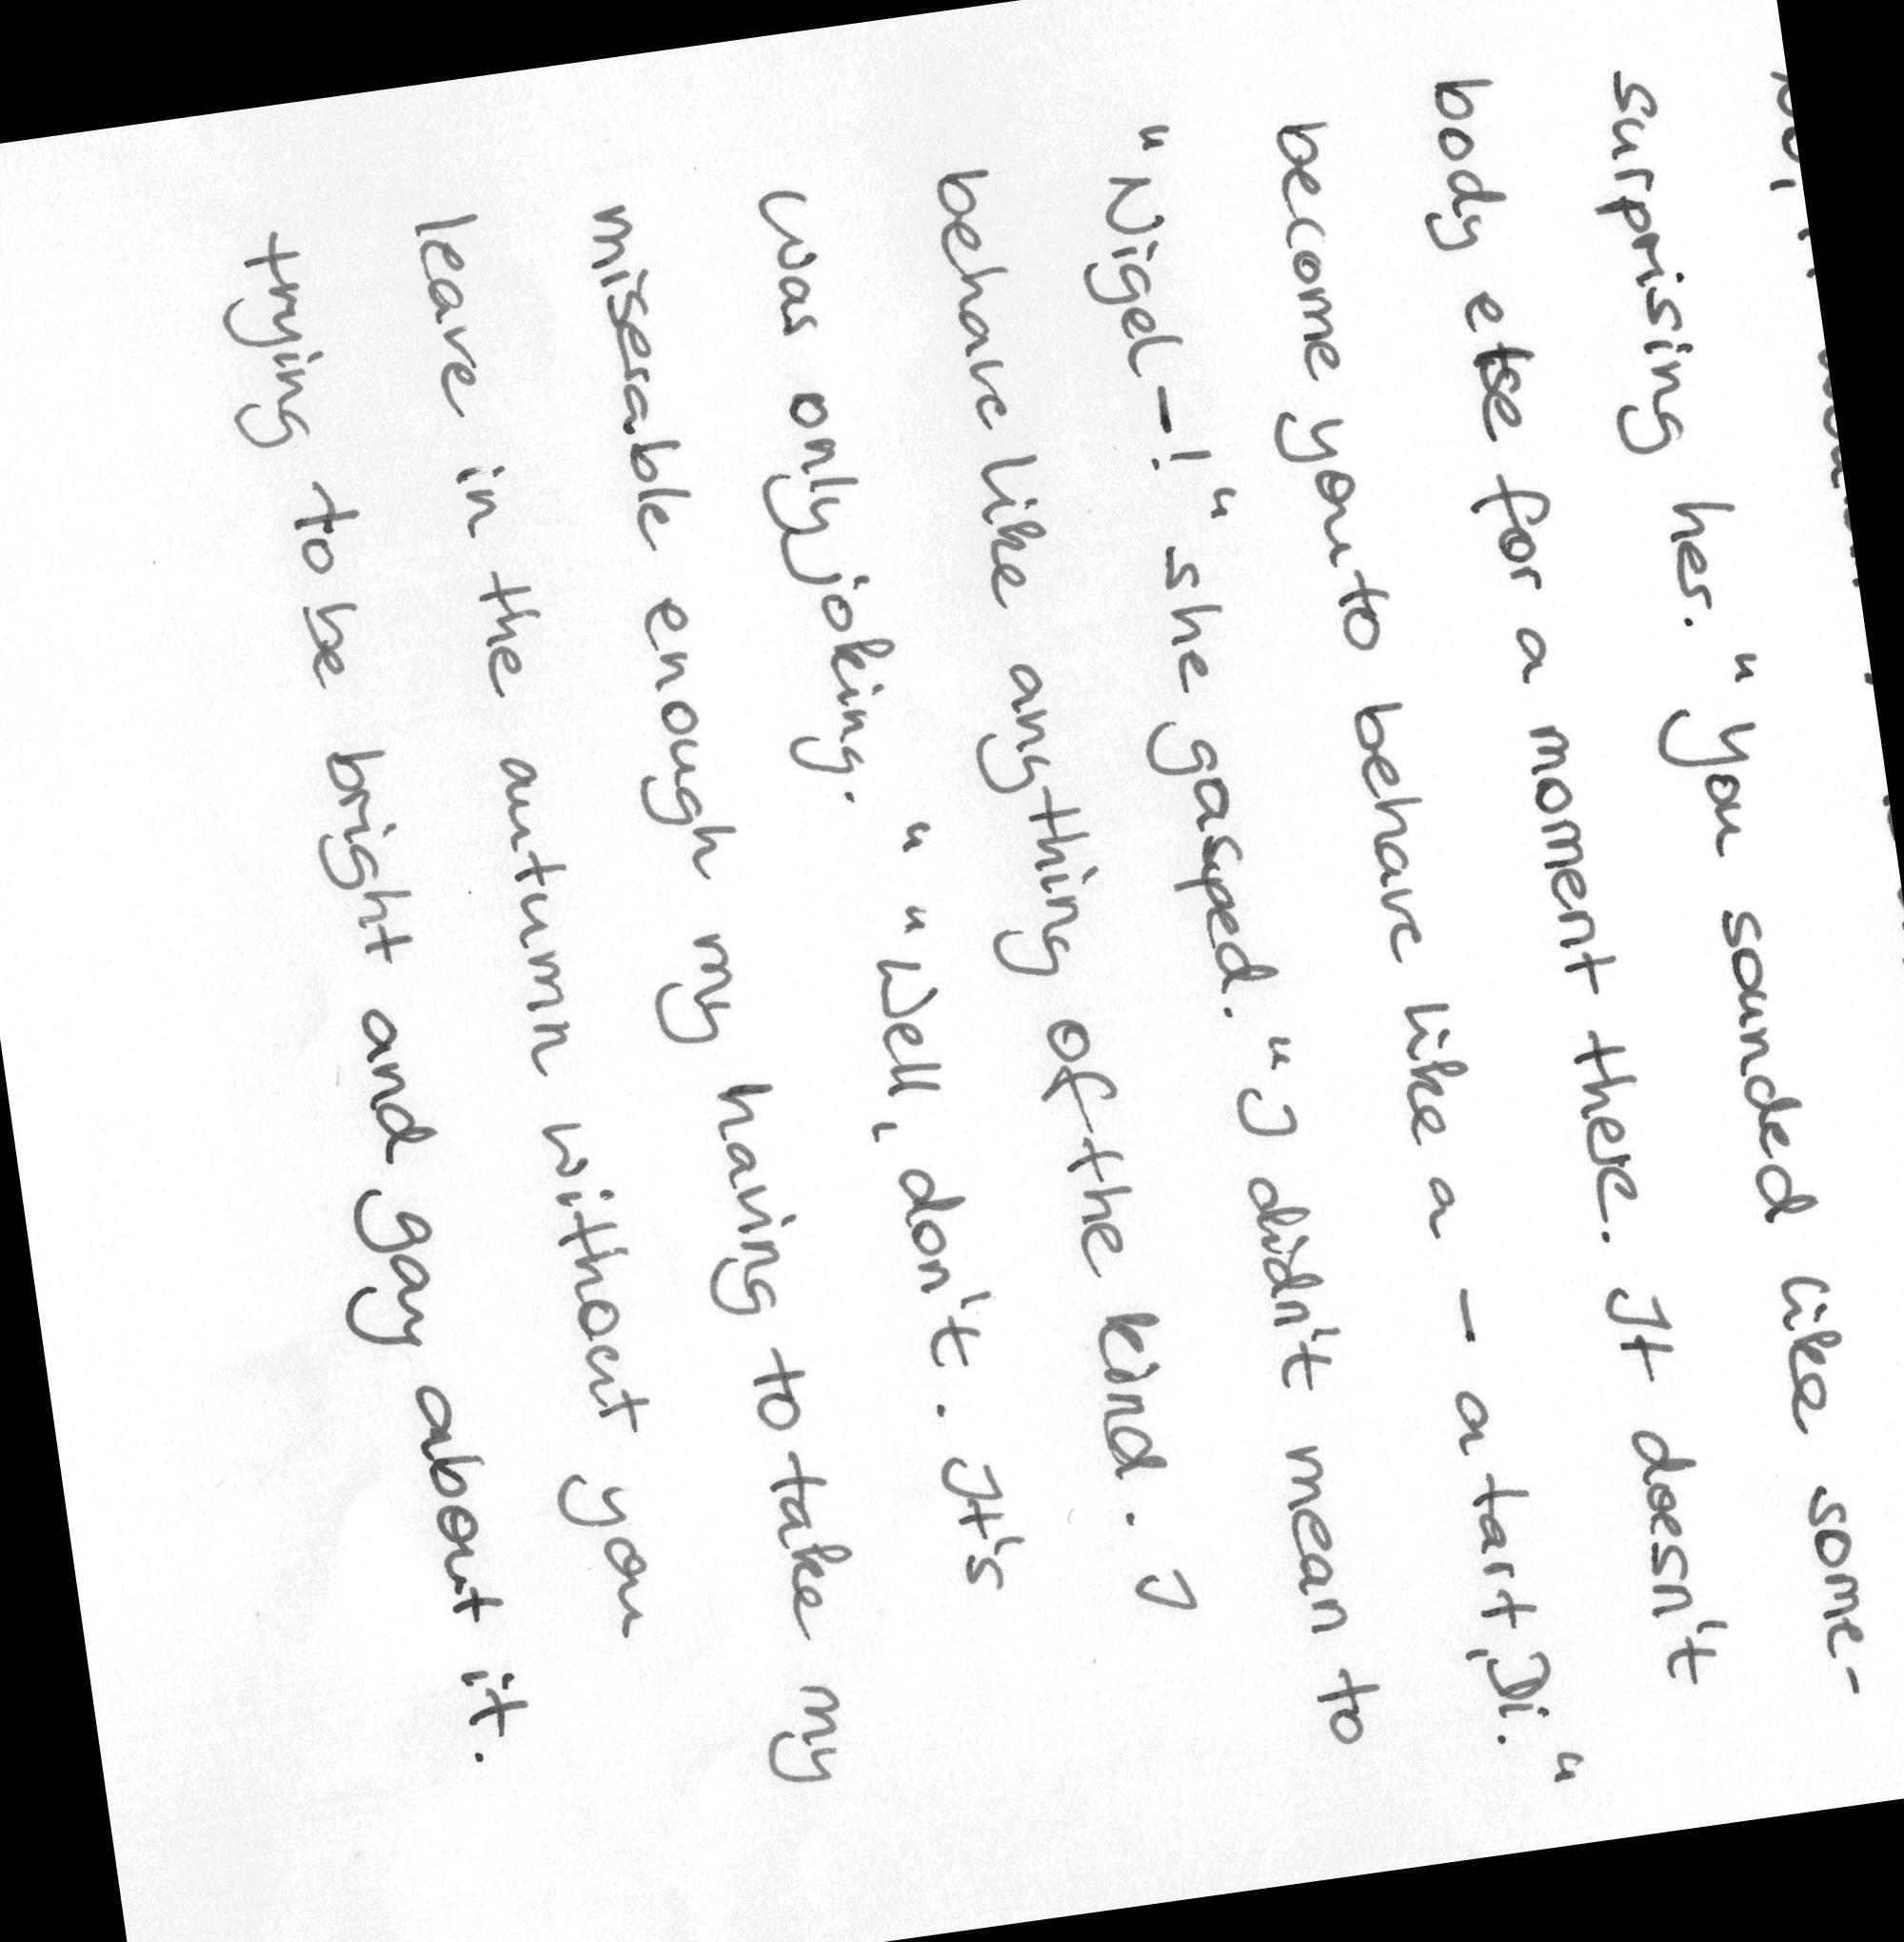 surprising her. "You sounded like some-
body else for a moment there. It doesn't
become you to behave like a - a tart, Di."
"Nigel -!" she gasped. "I didn't mean to
behave like anything of the kind. I
was only joking." "Well, don't. It's
miserable enough my having to take my
leave in the autumn without you
trying to be bright and gay about it.